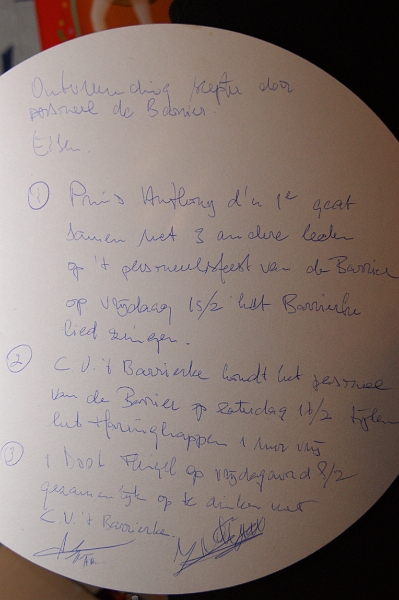 Ontvreemding scepter door
personeel de Barrier.
Eisen.
① Prins Anthony d'n 1e gaat
samen met 3 andere leden
op 't personeelsfeest van de Barrier
op vrijdag 15/2 het Barrierke
lied zingen.
② C.V. 't Barrierke houdt het personeel
van de Barrier op zaterdag tijdens
het Haringhappen 1 uur vrij
③ 1 op vrijdagavond 8/2
gezamenlijk op te drinken met
C.V. 't Barrierke.